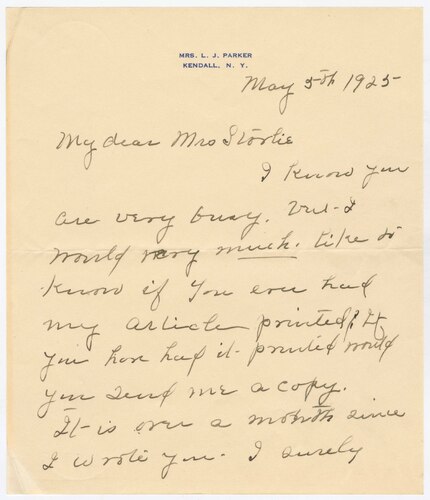 MRS. L. J. PARKER
KENDALL, N. Y.
May 5th 1925
My dear Mrs Storlie
I know you
are very busy. But I
would very much. like to
know if you ever had
my article printed? If
you have had it printed would
you send me a copy.
It is over a month since
I wrote you. I surely